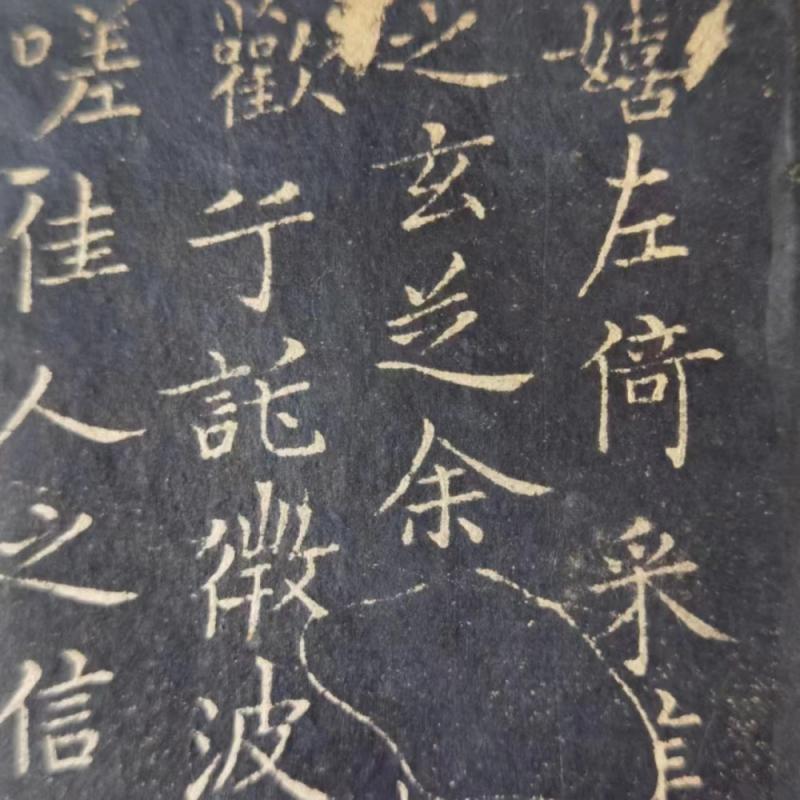 嬉左倚采
之玄芝余
歡兮託微波
嗟佳人之信